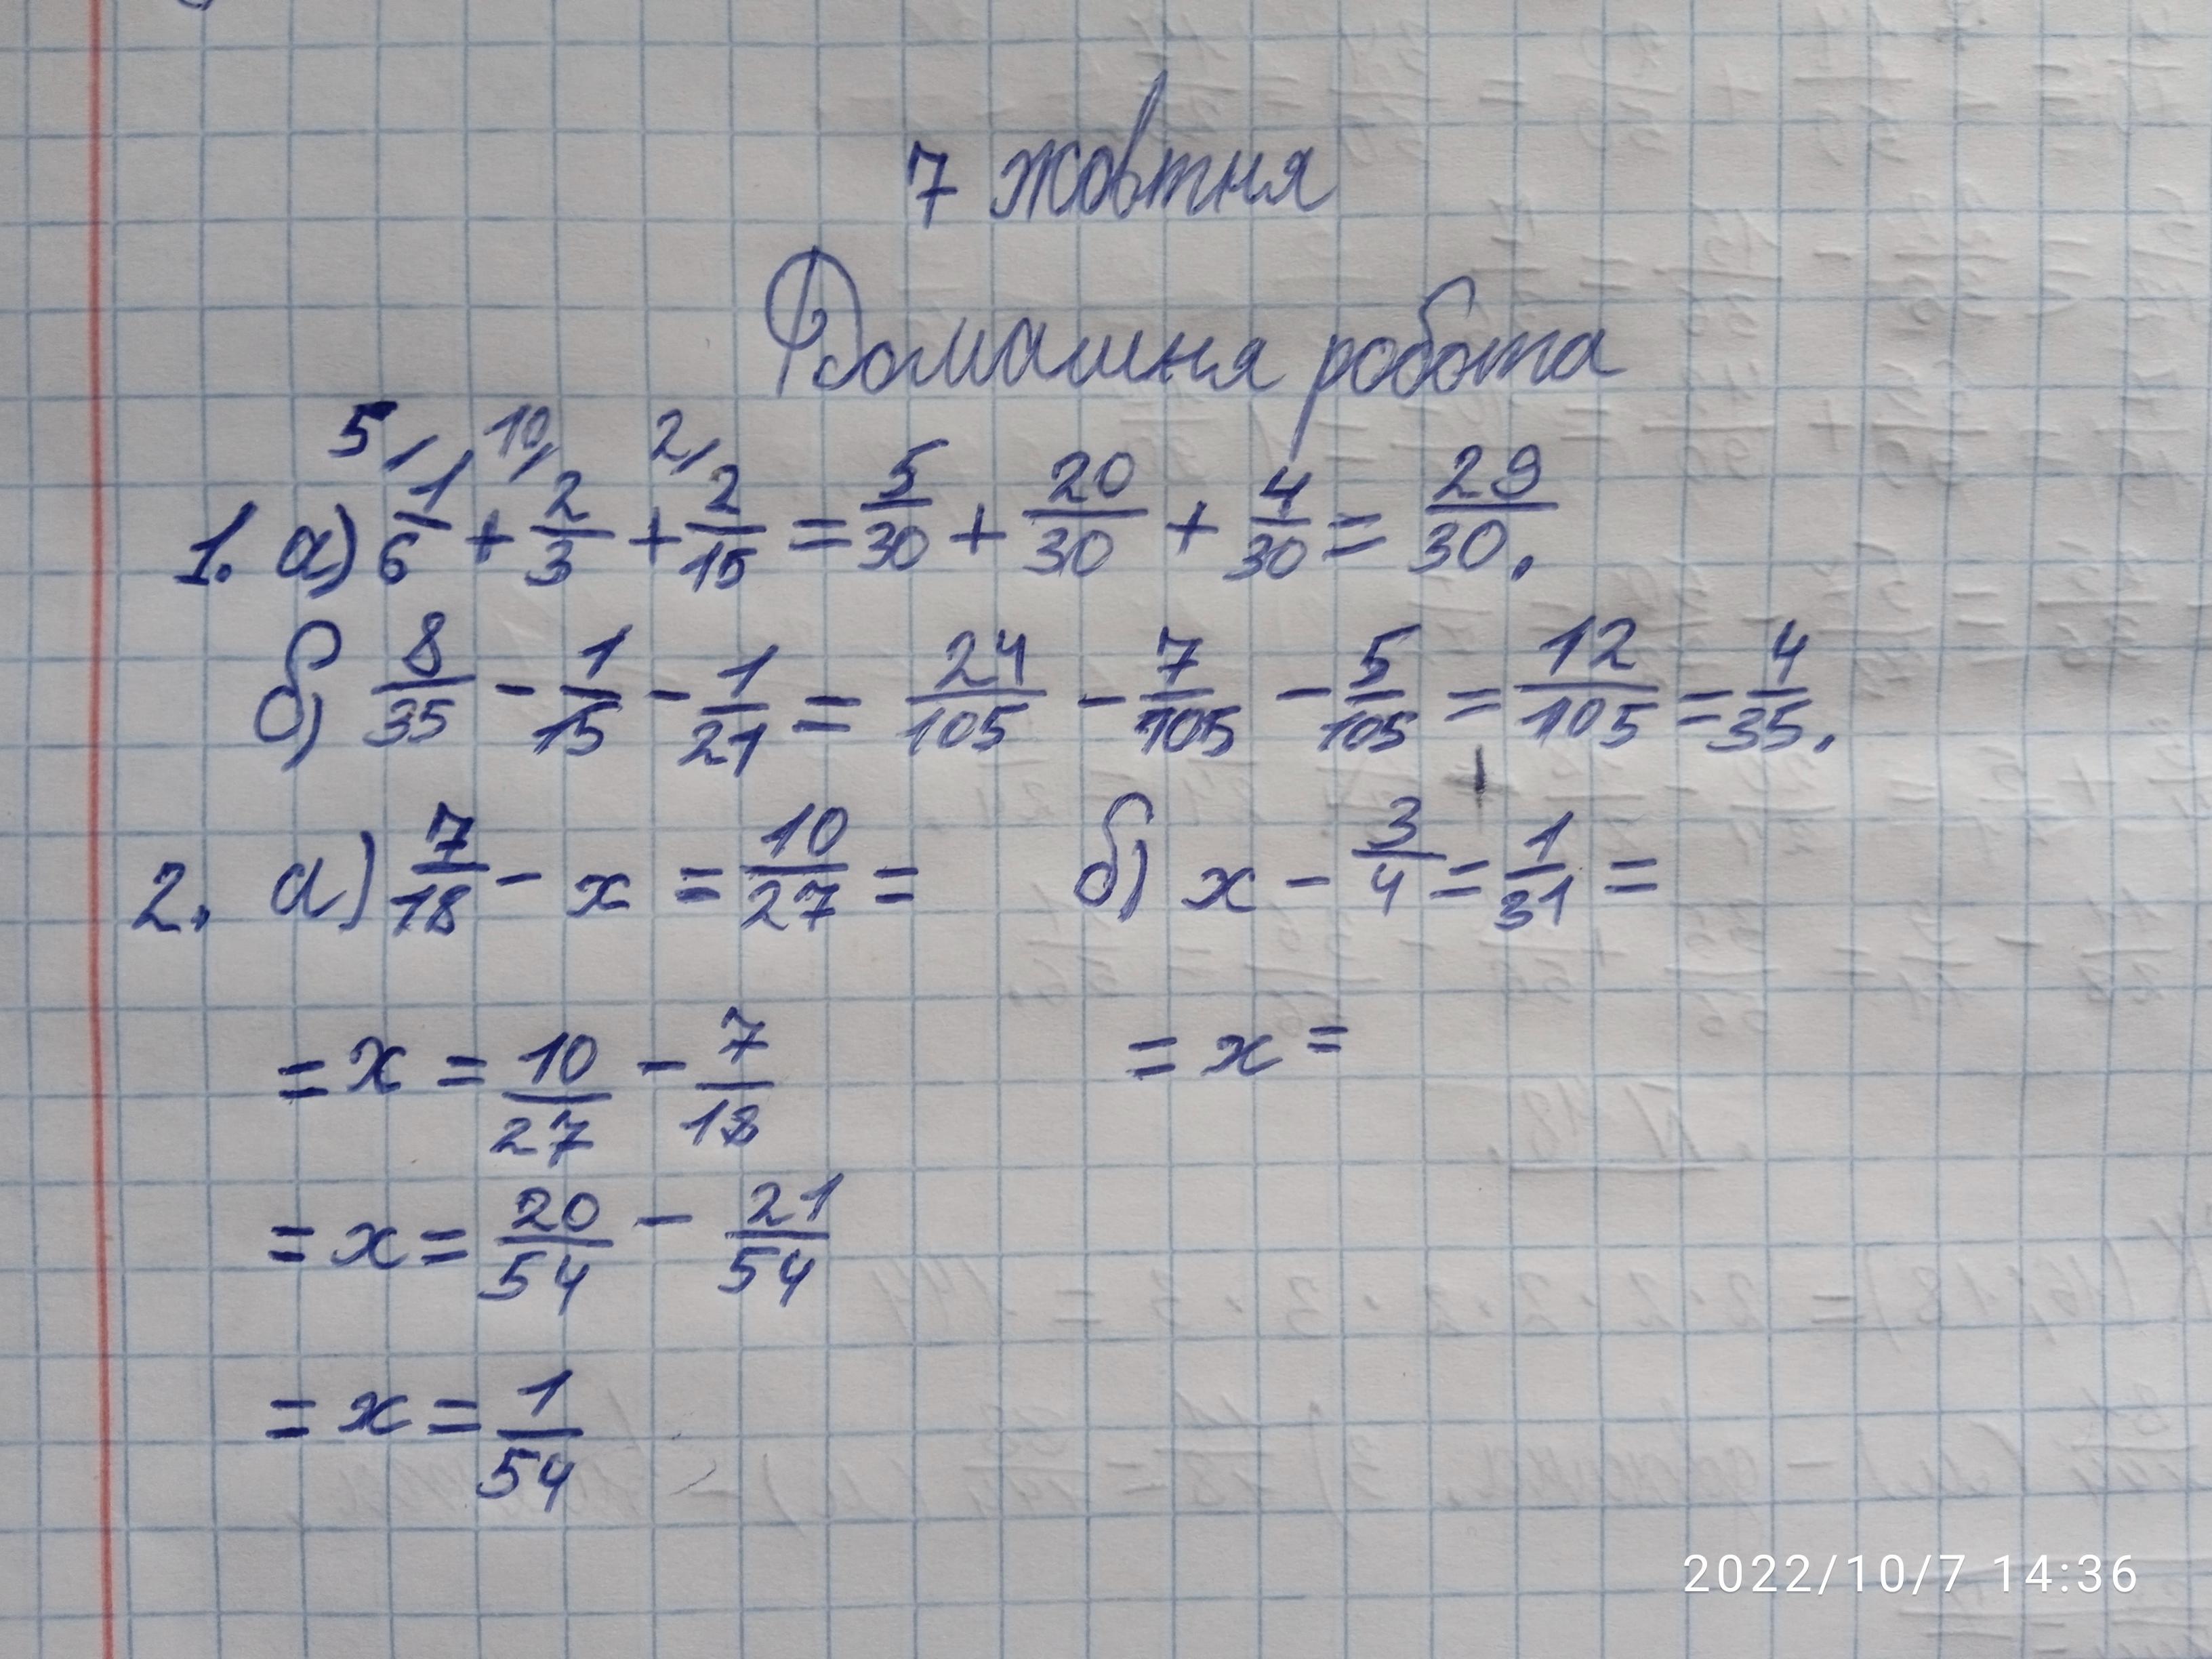 7 жовтня
Домашня робота
5/ 10/ 2/
1. а) 1/6 + 2/3 + 2/15 = 5/30 + 20/30 + 4/30 = 29/30.
б) 8/35 - 1/15 - 1/21 = 24/105 - 7/105 - 5/105 = 12/105 = 4/35.
2. а) 7/18 - x = 10/27 = б) x - 3/4 = 1/31 =
= x = 10/27 - 7/18 = x =
= x = 20/54 - 21/54
= x = 1/54
2022/10/7 14:36